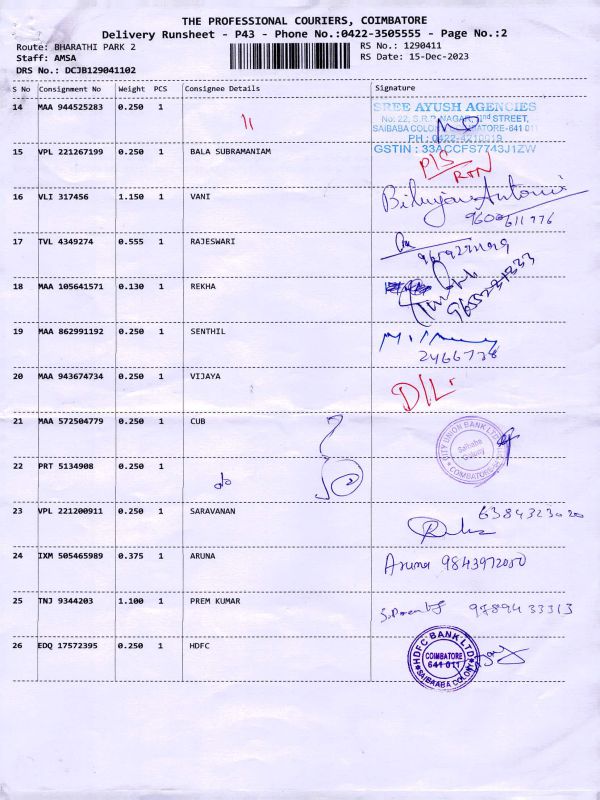 THE PROFESSIONAL COURIERS, COIMBATORE
Delivery Runsheet - P43 - Phone No.:0422-3505555 - Page No.:2
Route: BHARATHI PARK 2 RS No.: 1290411
Staff: AMSA RS Date: 15-Dec-2023
DRS No.: DCJB129041102
S No Consignment No Weight PCS Consignee Details Signature
14 MAA 944525283 0.250 1 11
SREE AYUSH AGENCIES
No: 22, S.R.P. NAGAR, IInd STREET,
SAIBABA COLONY, COIMBATORE-641 011
GSTIN : 33ACCFS7743J1ZW
15 VPL 221267199 0.250 1 BALA SUBRAMANIAM P/S
RTN
16 VLI 317456 1.150 1 VANI
9600611776
17 TVL 4349274 0.555 1 RAJESWARI
18 MAA 105641571 0.130 1 REKHA
19 MAA 862991192 0.250 1 SENTHIL
2466738
20 MAA 943674734 0.250 1 VIJAYA D/L.
21 MAA 572504779 0.250 1 CUB CITY UNION BANK LTD
Saibaba
Colony
COIMBATORE
22 PRT 5134908 0.250 1 do
23 VPL 221200911 0.250 1 SARAVANAN 6384323020
24 IXM 505465989 0.375 1 ARUNA Aruna 9843972050
25 TNJ 9344203 1.100 1 PREM KUMAR 9789433313
26 EDQ 17572395 0.250 1 HDFC HDFC BANK LTD
COIMBATORE
641 011
SAIBAABA COLONY